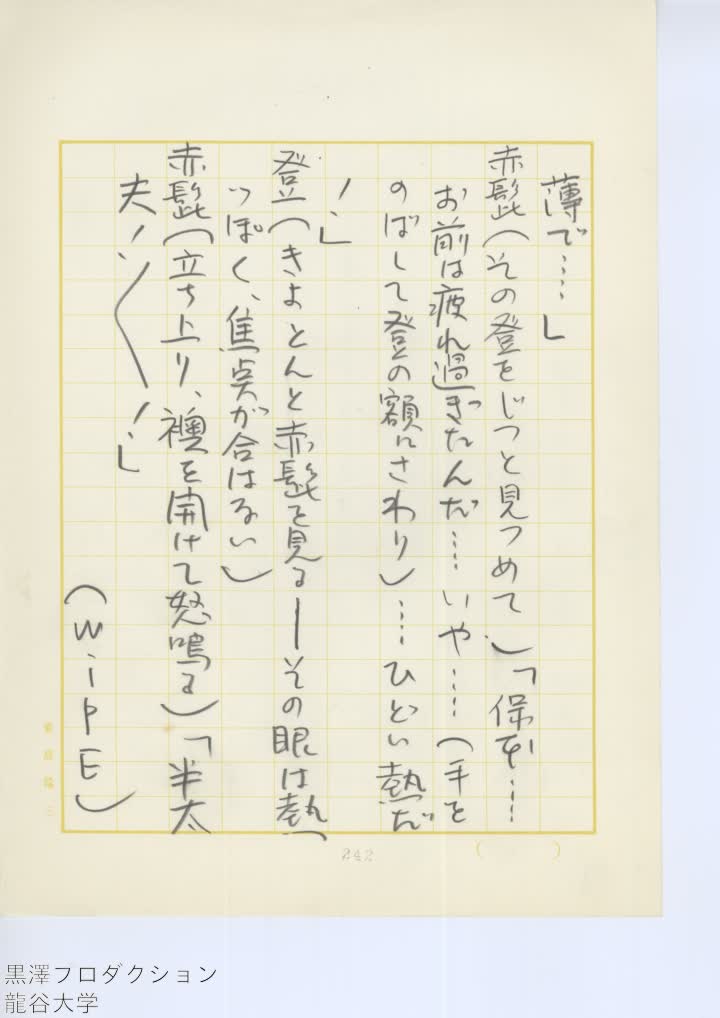 薄で……」
赤髭(その登をじつと見つめて)「保本……
お前は疲れ過ぎたんだ……いや……(手を
のばして登の額にさわり)……ひどい熱だ
!」
登(きよとんと赤髭を見る―その眼は熱
つぽく、焦点が合はない)
赤髭(立ち上り、襖を開けて怒鳴る)「半太
夫!〱!」
(WipE)
242
( )
黒澤プロダクション
龍谷大学